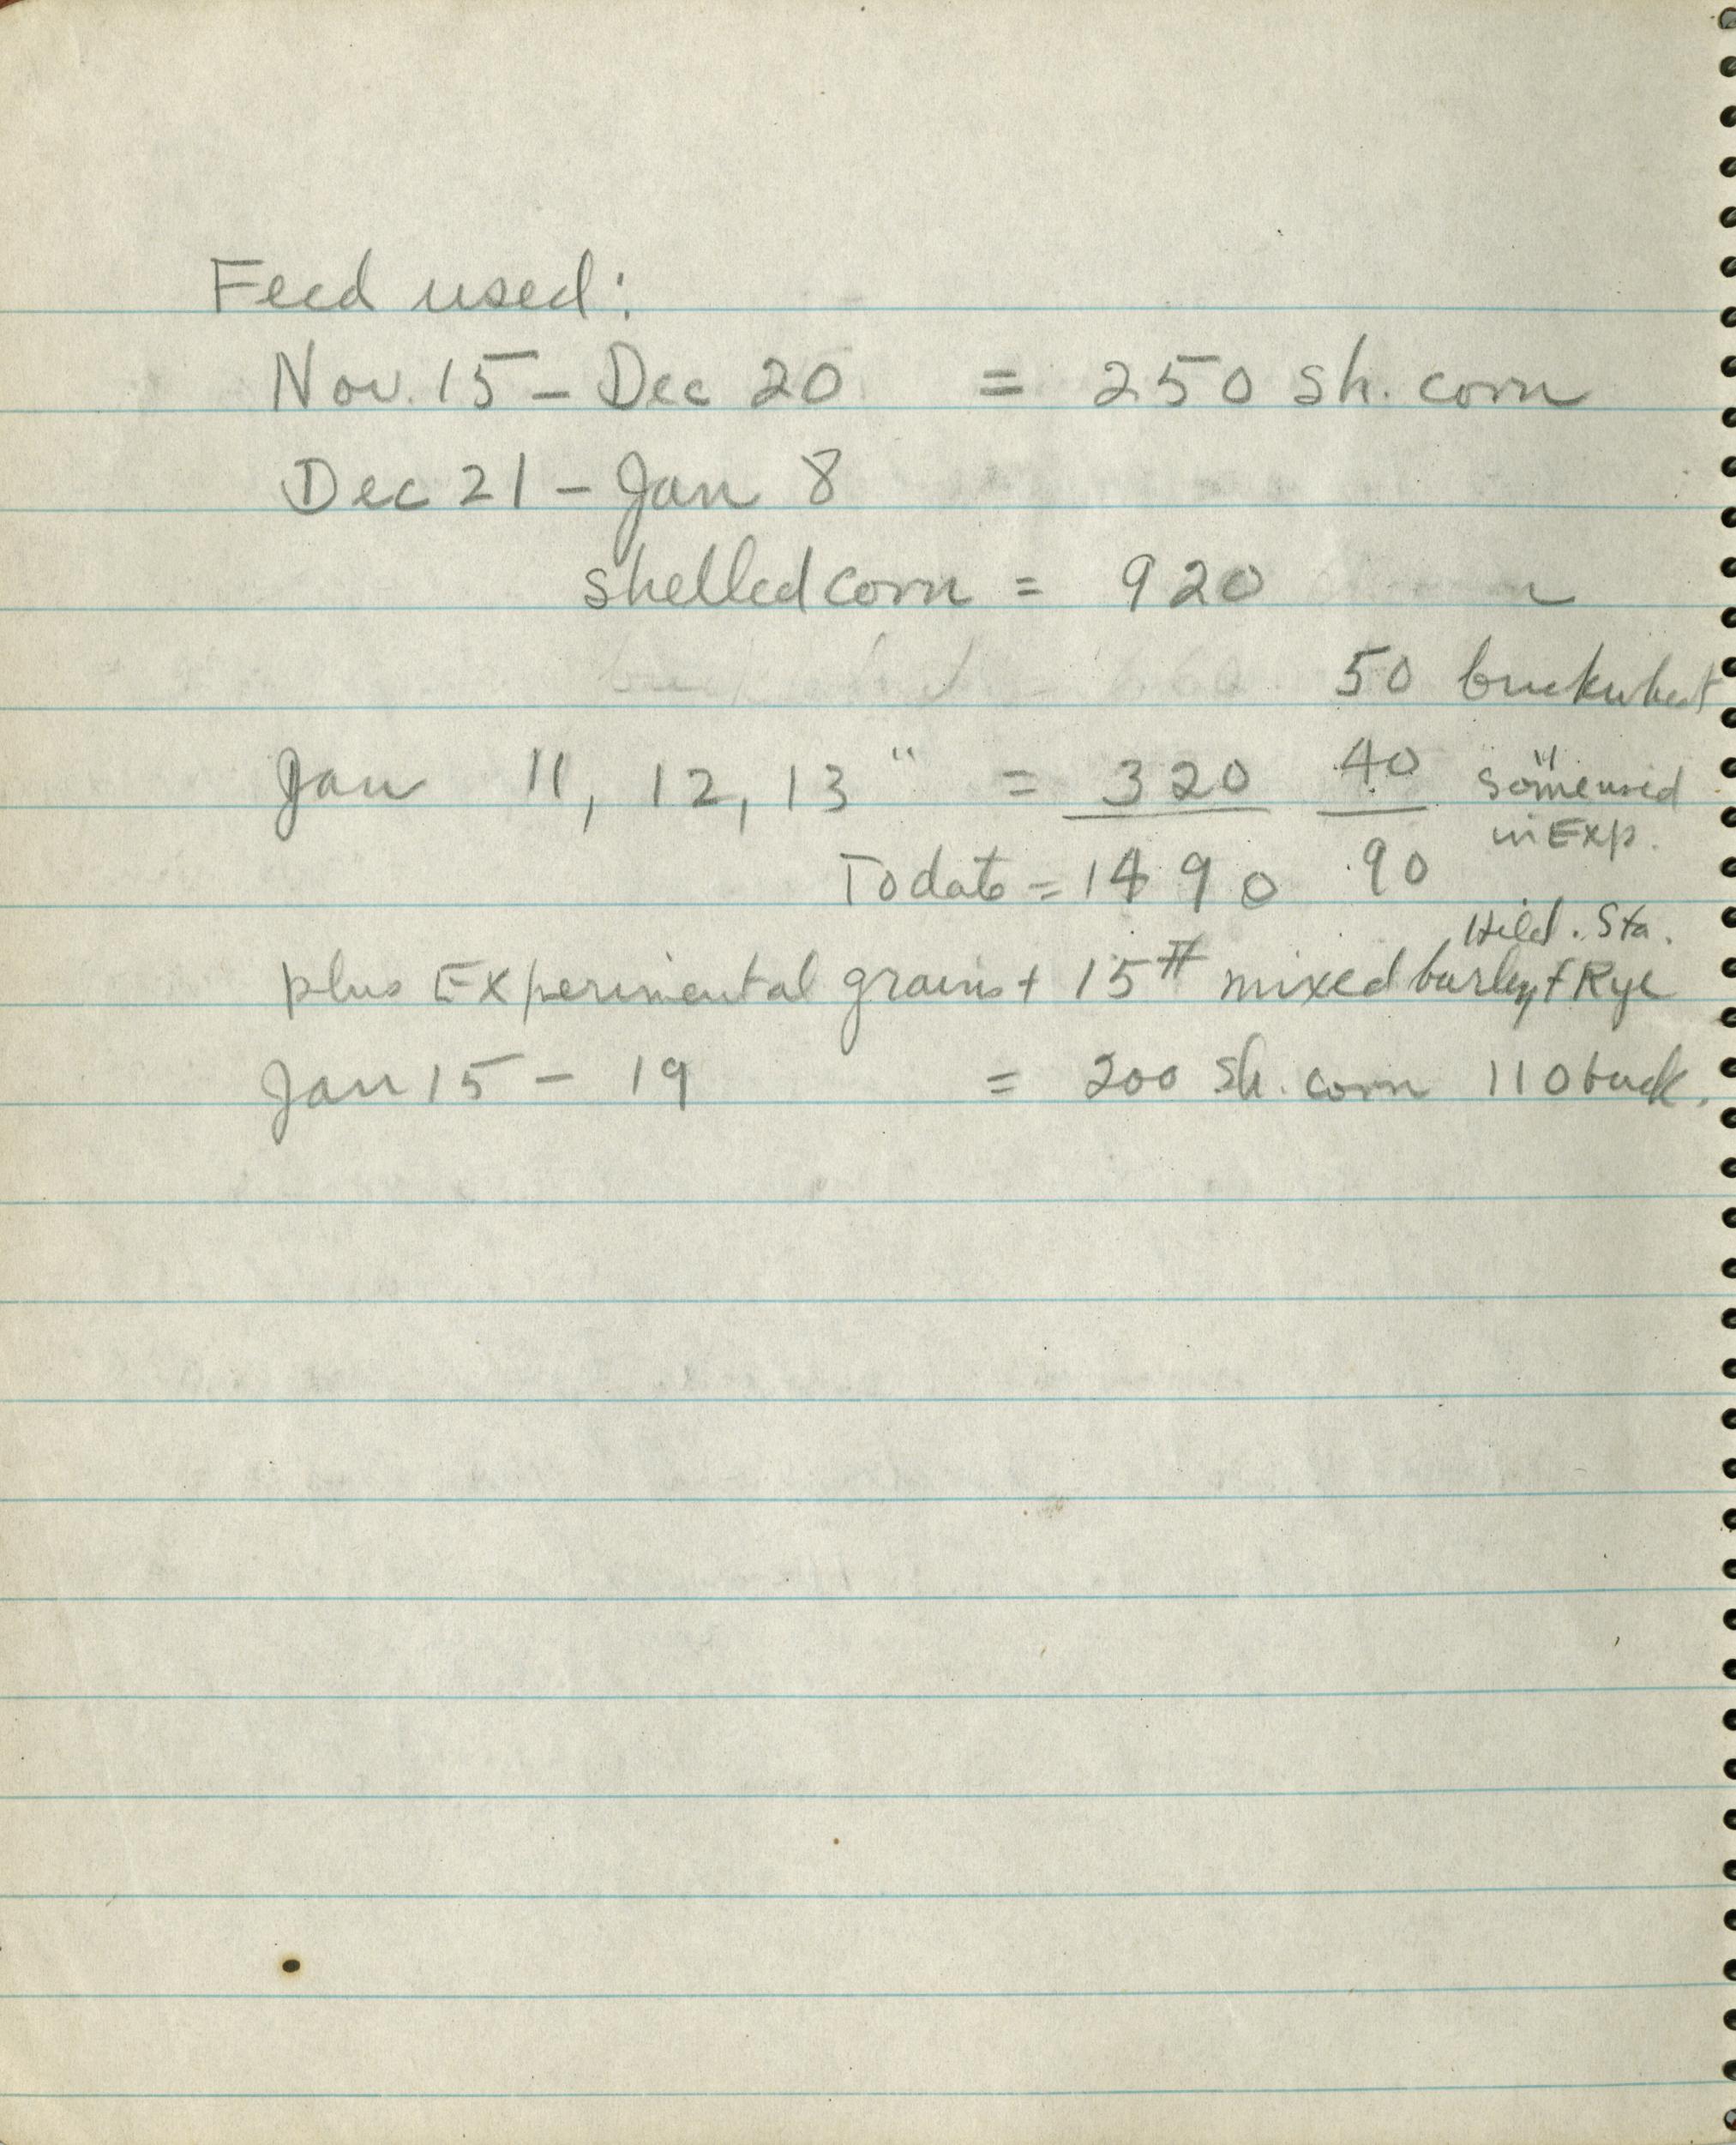 Feed used:
Nov. 15 - Dec 20 = 250 sh. corn
Dec 21 - Jan 8
shelled corn = 920
50 buckwheat
Jan 11, 12, 13 " = 320 40 "
some used
in Exp.
To date = 1490 90
Hild. Sta.
plus Experimental grains + 15# mixed barley + Rye
Jan 15 - 19 = 200 sh. corn 110 buck.